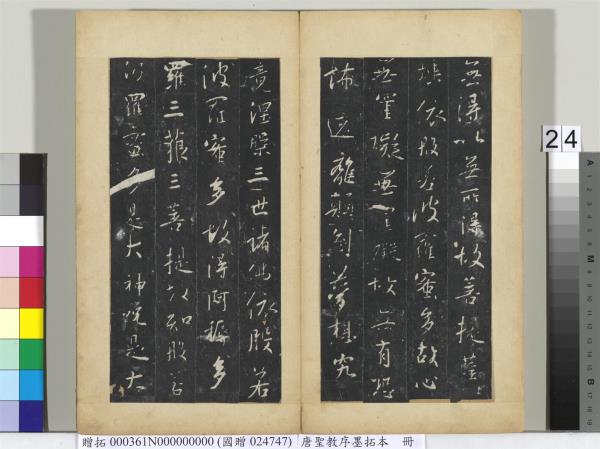 無得以無所得故菩提薩
埵依般若波羅蜜多故心
無罣礙無罣礙故無有恐
怖遠離顛倒夢想究
竟涅槃三世諸佛依般若
波羅蜜多故得阿耨多
羅三藐三菩提故知般若
波羅蜜多是大神咒是大
24
A
M
B
贈拓 000361N000000000 (國贈 024747) 唐聖教序墨拓本 冊